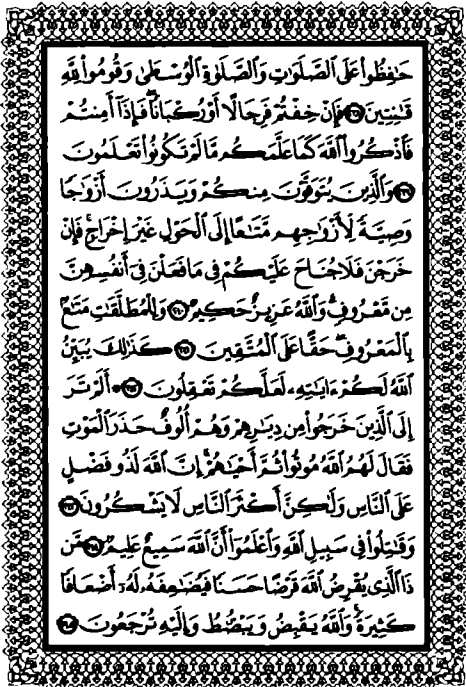 حَٰفِظُوا۟ عَلَى ٱلصَّلَوَٰتِ وَٱلصَّلَوٰةِ ٱلْوُسْطَىٰ وَقُومُوا۟ لِلَّهِ
قَٰنِتِينَ فَإِنْ خِفْتُمْ فَرِجَالًا أَوْ رُكْبَانًا فَإِذَآ أَمِنتُمْ
فَٱذْكُرُوا۟ ٱللَّهَ كَمَا عَلَّمَكُم مَّا لَمْ تَكُونُوا۟ تَعْلَمُونَ
وَٱلَّذِينَ يُتَوَفَّوْنَ مِنكُمْ وَيَذَرُونَ أَزْوَٰجًا
وَصِيَّةٌ لِّأَزْوَٰجِهِم مَّتَٰعًا إِلَى ٱلْحَوْلِ غَيْرَ إِخْرَاجٍ فَإِنْ
خَرَجْنَ فَلَا جُنَاحَ عَلَيْكُمْ فِى مَا فَعَلْنَ فِىٓ أَنفُسِهِنَّ
مِن مَّعْرُوفٍ وَٱللَّهُ عَزِيزٌ حَكِيمٌ وَلِلْمُطَلَّقَٰتِ مَتَٰعٌۢ
بِٱلْمَعْرُوفِ حَقًّا عَلَى ٱلْمُتَّقِينَ كَذَٰلِكَ يُبَيِّنُ
ٱللَّهُ لَكُمْ ءَايَٰتِهِۦ لَعَلَّكُمْ تَعْقِلُونَ أَلَمْ تَرَ
إِلَى ٱلَّذِينَ خَرَجُوا۟ مِن دِيَٰرِهِمْ وَهُمْ أُلُوفٌ حَذَرَ ٱلْمَوْتِ
فَقَالَ لَهُمُ ٱللَّهُ مُوتُوا۟ ثُمَّ أَحْيَٰهُمْ إِنَّ ٱللَّهَ لَذُو فَضْلٍ
عَلَى ٱلنَّاسِ وَلَٰكِنَّ أَكْثَرَ ٱلنَّاسِ لَا يَشْكُرُونَ
وَقَٰتِلُوا۟ فِى سَبِيلِ ٱللَّهِ وَٱعْلَمُوٓا۟ أَنَّ ٱللَّهَ سَمِيعٌ عَلِيمٌ مَّن
ذَا ٱلَّذِى يُقْرِضُ ٱللَّهَ قَرْضًا حَسَنًا فَيُضَٰعِفُهُۥ لَهُۥٓ أَضْعَافًا
كَثِيرَةً وَٱللَّهُ يَقْبِضُ وَيَبْصُطُ وَإِلَيْهِ تُرْجَعُونَ